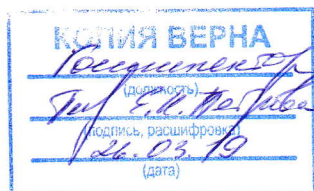 КОПИЯ ВЕРНА
Госинспектор
(должность)
Е.И. Петрова
(подпись, расшифровка)
26.03.19
(дата)